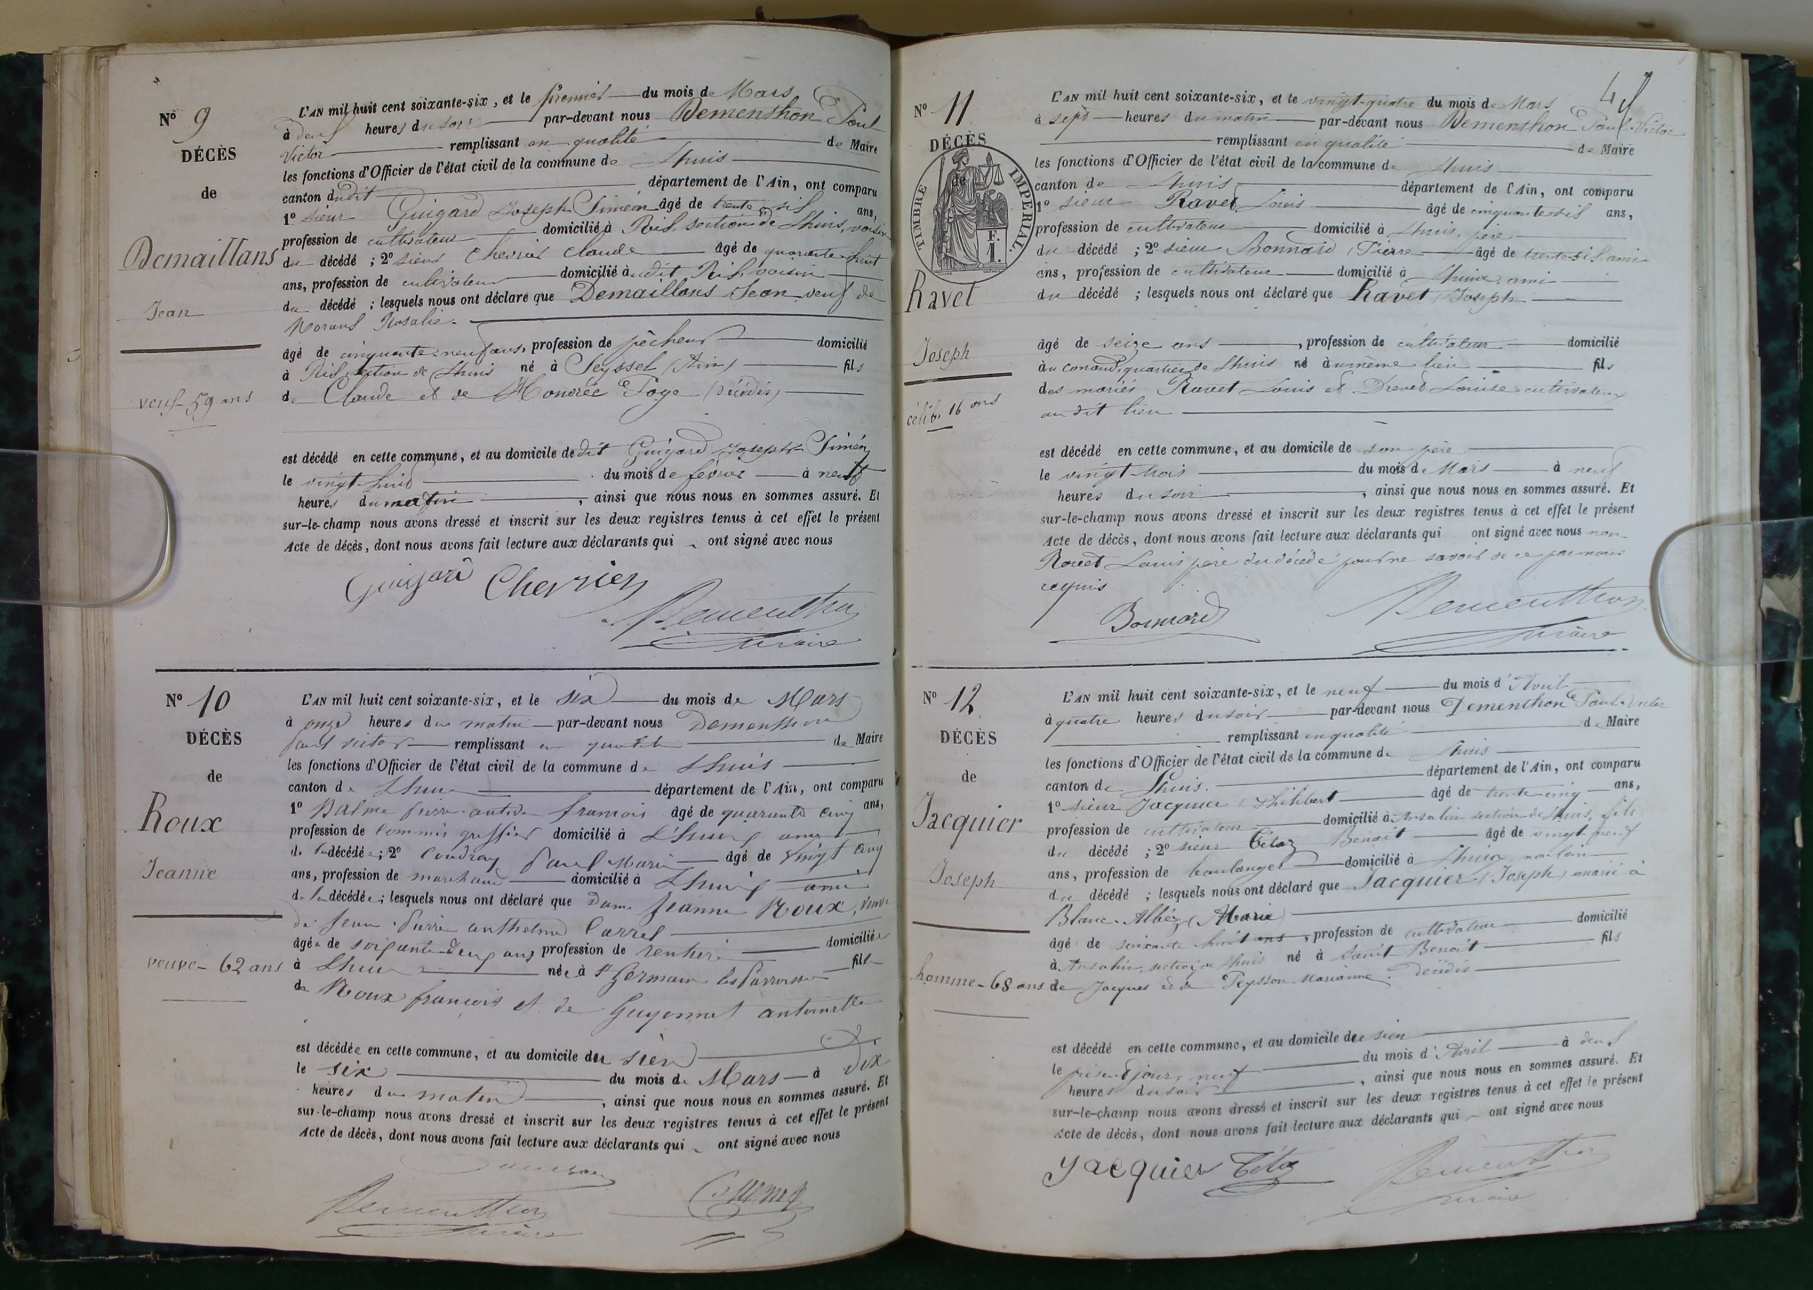 N° 9
DÉCÈS
de
Demaillans
Jean
veuf 59 ans
L'AN mil huit cent soixante-six, et le premier du mois de Mars
à deux heures du soir par-devant nous Dementhon Paul
Victor remplissant en qualité de Maire
les fonctions d'Officier de l'état civil de la commune de Lhuis
canton dudit département de l'Ain, ont comparu
1° sieur Guigard Joseph Siméon âgé de trente six ans,
profession de cultivateur domicilié à Rix section de Lhuis, voisin
du décédé ; 2° sieur Chevrier Claude âgé de quarante huit
ans, profession de cultivateur domicilié à dit Rix voisin
du décédé ; lesquels nous ont déclaré que Demaillans Jean veuf de
Morand Rosalie
âgé de cinquante neuf ans, profession de pêcheur domicilié
à Rix section de Lhuis né à Seyssel (Ain) fils
de Claude et de Poye (décédés)
est décédé en cette commune, et au domicile de dit Guigard Joseph Siméon
le vingt huit du mois de février à neuf
heures du matin, ainsi que nous nous en sommes assuré. Et
sur-le-champ nous avons dressé et inscrit sur les deux registres tenus à cet effet le présent
Acte de décès, dont nous avons fait lecture aux déclarants qui ont signé avec nous
Guigard Chevrier
Dementhon
maire
N° 10
DÉCÈS
de
Roux
Jeanne
veuve - 62 ans
L'AN mil huit cent soixante-six, et le six du mois de Mars
à onze heures du matin par-devant nous Dementhon
Paul Victor remplissant en qualité de Maire
les fonctions d'Officier de l'état civil de la commune de Lhuis
canton de Lhuis département de l'Ain, ont comparu
1° Balme françois âgé de quarante cinq ans,
profession de commis greffier domicilié à Lhuis ami
de la décédée ; 2° Coudray Paul Marie âgé de vingt cinq
ans, profession de marchand domicilié à Lhuis ami
de la décédée ; lesquels nous ont déclaré que dame Jeanne Roux, veuve
de Jean Pierre anthelme Carrel
âgée de soixante deux ans, profession de rentière domiciliée
à Lhuis née à St Germain les Paroisses fille
de Roux françois et de Guyonnet antoinette
est décédée en cette commune, et au domicile de sien
le six du mois de Mars à dix
heures du matin, ainsi que nous nous en sommes assuré. Et
sur-le-champ nous avons dressé et inscrit sur les deux registres tenus à cet effet le présent
Acte de décès, dont nous avons fait lecture aux déclarants qui ont signé avec nous
Dementhon
maire
N° 11
DÉCÈS
de
TIMBRE IMPÉRIAL.
F.
1.
Ravet
Joseph
célib. 16 ans
L'AN mil huit cent soixante-six, et le vingt-quatre du mois de Mars
à sept heures du matin par-devant nous Dementhon Paul Victor
remplissant en qualité de Maire
les fonctions d'Officier de l'état civil de la commune de Lhuis
canton de Lhuis département de l'Ain, ont comparu
1° sieur Ravet Louis âgé de cinquante six ans,
profession de cultivateur domicilié à Lhuis, père
du décédé ; 2° sieur Bonnard Pierre âgé de trente six ans
ans, profession de cultivateur domicilié à Lhuis ami
du décédé ; lesquels nous ont déclaré que Ravet Joseph
âgé de seize ans, profession de cultivateur domicilié
quartier de Lhuis né au même lieu fils
des mariés Ravet Louis et Drevet Louise cultivateurs
au dit lieu
est décédé en cette commune, et au domicile de son père
le vingt trois du mois de Mars à neuf
heures du soir, ainsi que nous nous en sommes assuré. Et
sur-le-champ nous avons dressé et inscrit sur les deux registres tenus à cet effet le présent
Acte de décès, dont nous avons fait lecture aux déclarants qui ont signé avec nous non
Ravet Louis père du décédé pour ne savoir de ce par nous
requis
Bonnard
Dementhon
maire
N° 12
DÉCÈS
de
Jacquier
Joseph
homme - 68 ans
L'AN mil huit cent soixante-six, et le neuf du mois d'Avril
à quatre heures du soir par-devant nous Dementhon Paul Victor
remplissant en qualité de Maire
les fonctions d'Officier de l'état civil de la commune de Lhuis
canton de Lhuis. département de l'Ain, ont comparu
1° sieur Jacquier Philibert âgé de trente cinq ans,
profession de cultivateur domicilié à Ansolin section de Lhuis, fils
du décédé ; 2° sieur Tétaz Benoît âgé de vingt neuf
ans, profession de boulanger domicilié à Lhuis non parent
du décédé ; lesquels nous ont déclaré que Jacquier (Joseph) marié à
Blanc Albéz (Marie)
âgé de soixante huit ans, profession de cultivateur domicilié
à Ansolin section de Lhuis né à Saint Benoît fils
de Jacques et de Peysson Marianne décédés
est décédé en cette commune, et au domicile de sien
le présent jour neuf du mois d'Avril à deux
heures du soir, ainsi que nous nous en sommes assuré. Et
sur-le-champ nous avons dressé et inscrit sur les deux registres tenus à cet effet le présent
Acte de décès, dont nous avons fait lecture aux déclarants qui ont signé avec nous
Jacquier Tétaz
Dementhon
maire